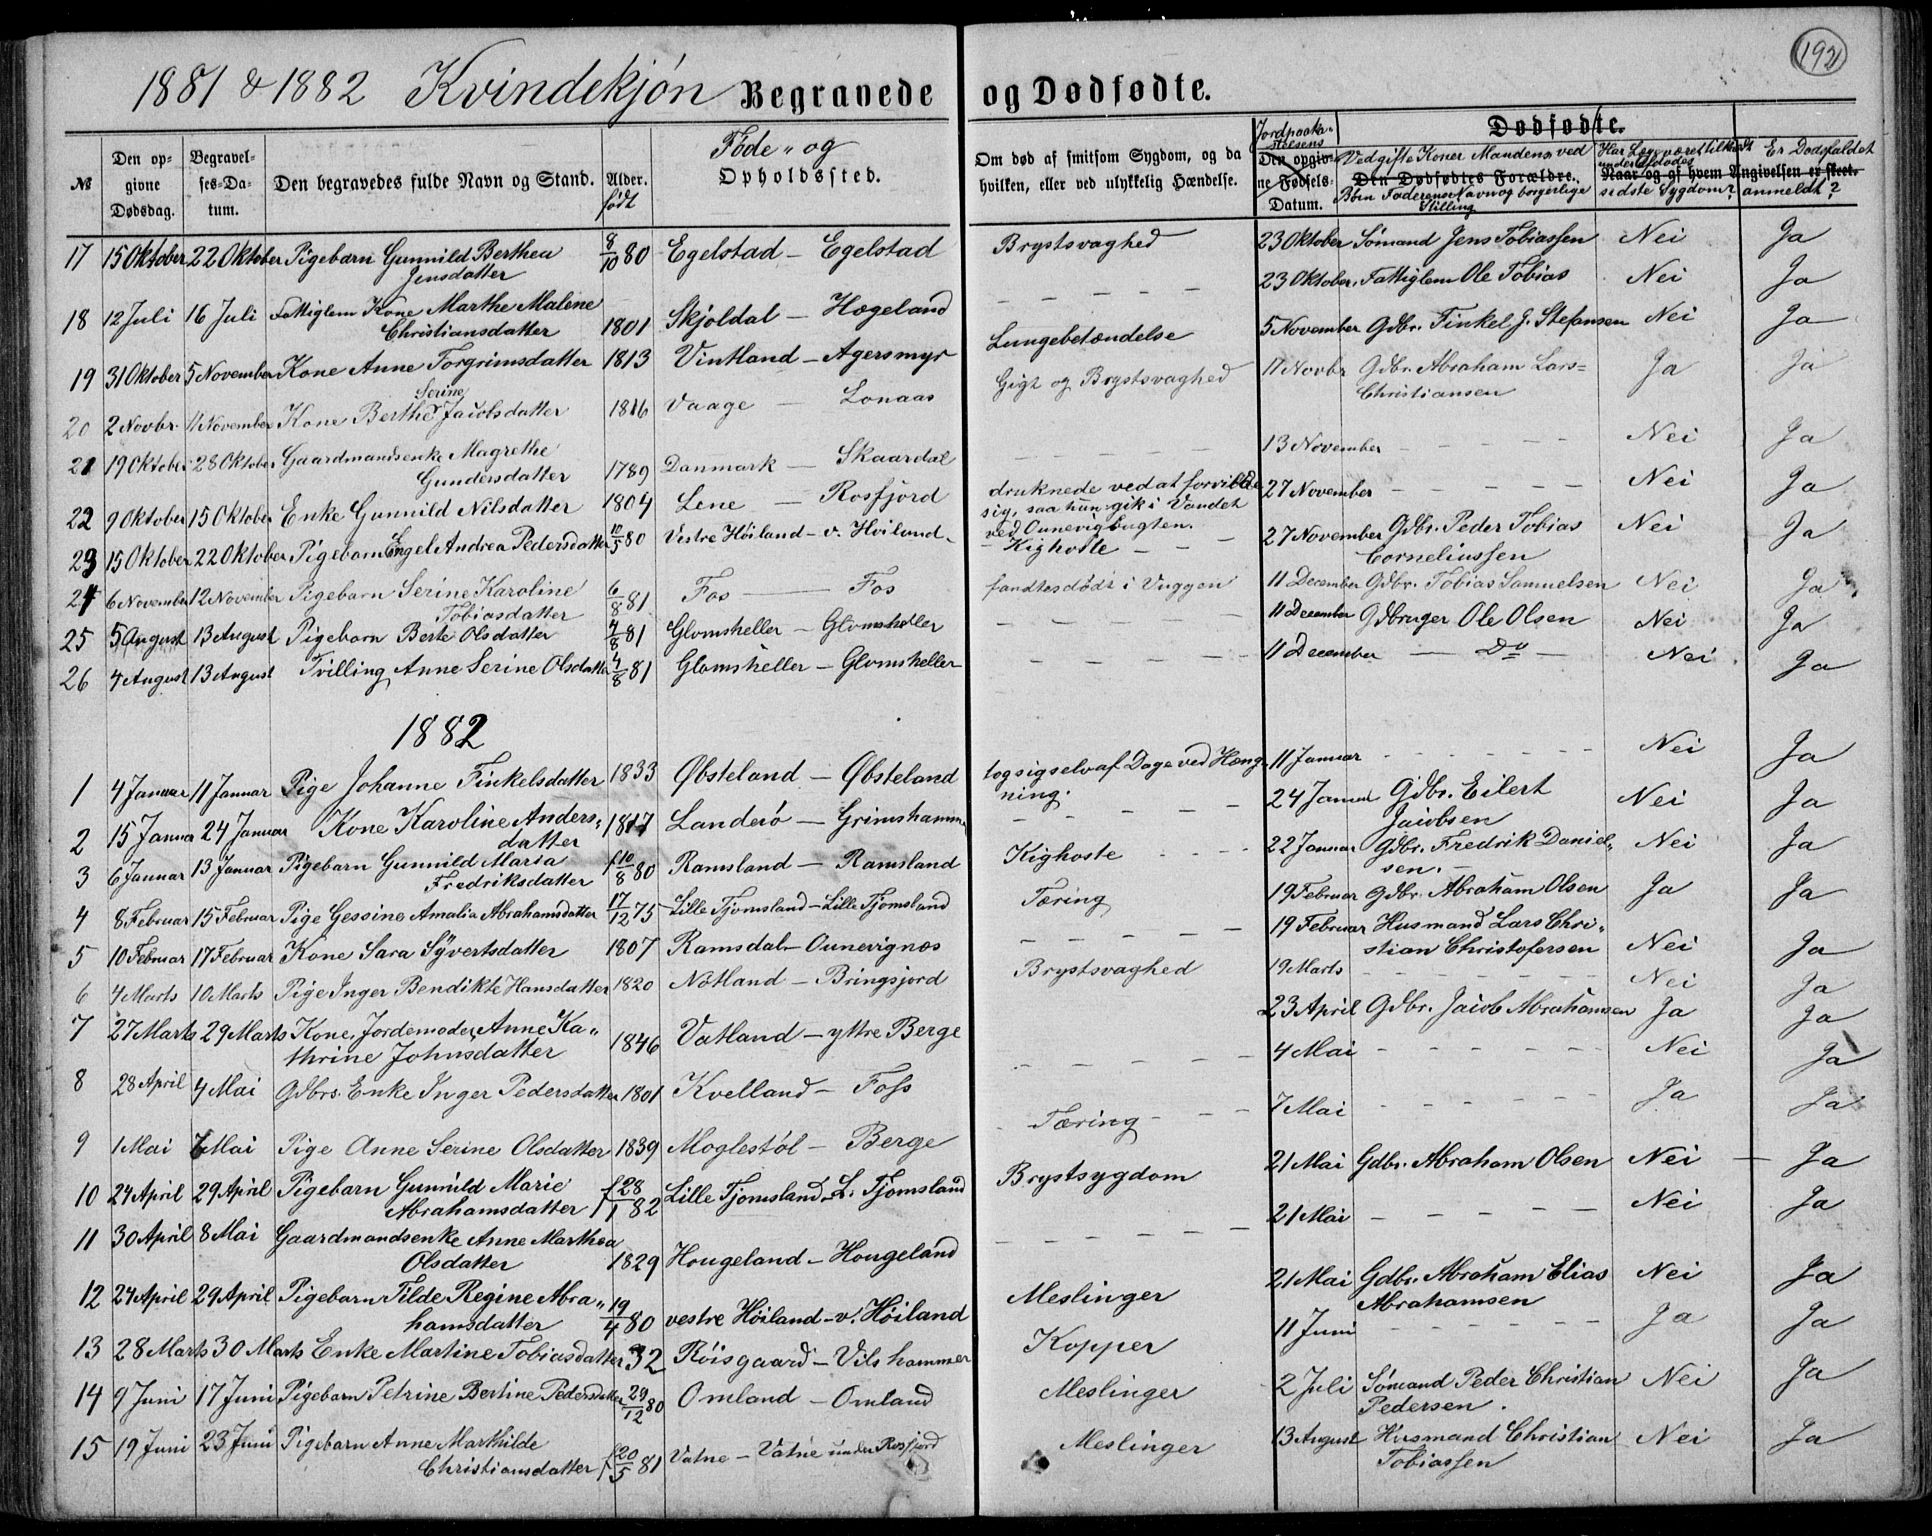 192
1881 & 1882 Kvindekjøn Begravede og Dødfødte.
№ Den opgivne Dødsdag. Begravelses-Datum. Den begravedes fulde Navn og Stand. Alder. født Føde- og Opholdssted. Om død af smitsom Sygdom, og da hvilken, eller ved ulykkelig Hændelse. Jordpaakastelsens Den opgivne Fødsels-Datum. Dødfødte. Vedgifte Koner Mandens, ved Den Dødfødtes Forældre. Børn Faderens Navn og borgerlige Stilling Har Læge været tilkaldt under Afdødes Naar og af hvem Angivelsen er skeet. sidste Sygdom? Er Dødsfaldet anmeldt?
17 15 Oktober 22 Oktober Pigebarn Gunnild Berthea 8/10 80 Egelstad - Egelstad Brystsvaghed 23 Oktober Sømand Jens Tobiassen Nei Ja
Jensdatter
18 12 Juli 16 Juli Fattiglem Kone Marthe Malene 1801 Skjoldal - Hægeland - - - - - 23 Oktober. Fattiglem Ole Tobias Nei Ja
Christiansdatter
19 31 Oktober 5 November Kone Anne Torgrimsdatter 1813 Vintland - Agersmyr Lungebetændelse 5 November Gdbr. Finkel J. Stefansen Nei Ja
Serine
20 2 Novbr. 11 November Kone Berthe Jacobsdatter 1816 Vaage - Lonaas Gigt og Brystsvaghed 11 Novbr Gdbr. Abraham Lars=
Christiansen Ja Ja
21 19 Oktober 28 Oktober Gaardmandsenke Magrethe
Gundersdatter 1789 Danmark - Skaardal - - - - - 13 November - - - - - Nei Ja
22 9 Oktober 15 Oktober Enke Gunnild Nilsdatter 1804 Lene - Rosfjord druknede ved at forvilde
sig, saa hun gik i Vandet
ved Ounevigbugten. 27 November - - - - - Nei Ja
23 15 Oktober 22 Oktober Pigebarn Engel Andrea Pedersdatter 10/5 80 Vestre Höiland - v. Höiland - Kighoste - - - 27 November Gdbr. Peder Tobias
Corneliussen Nei Ja
24 6 November 12 November Pigebarn Serine Karoline
Tobiasdatter 6/8 81 Fos - Fos fandtes død i Vuggen 11 December Gdbr. Tobias Samuelsen Nei Ja
25 5 August 13 August Pigebarn Berte Olsdatter 4/8 81 Glomsheller - Glomsheller - - - - - 11 December Gdbruger Ole Olsen Nei Ja
26 4 August 13 August Tvilling Anne Serine Olsdatter 4/8 81 Glomsheller - Glomsheller - - - - - 11 December - Do - Nei Ja
1882
1 4 Januar 11 Januar Pige Johanne Finkelsdatter 1833 Øbsteland - Øbsteland tog sig selv af Dage ved Hæng-
ning. 11 Januar - - - - - Nei Ja
2 15 Januar 24 Januar Kone Karoline Anders-
datter 1817 Landerö - Grimshammer - - - - - 24 Januar Gdbr. Eilert
Jacobsen Nei Ja
3 6 Januar 13 Januar Pigebarn Gunnild Maria
Fredriksdatter f 10/8 80 Ramsland - Ramsland Kighoste - - - 22 Januar Gdbr. Fredrik Daniel-
sen. Nei Ja
4 8 Februar 15 Februar Pige Gessine Amalia Abrahamsdatter 17/12 75 Lille Tjomsland - Lille Tjomsland Tæring 19 Februar Gdbr. Abraham Olsen Ja Ja
5 10 Februar 17 Februar Kone Sara Syvertsdatter 1807 Ramsdal - Ounevignæs - - - - - 19 Februar Husmand Lars Chri-
stian Christofersen Nei Ja
6 4 Marts 10 Marts Pige Inger Bendikte Hansdatter 1820 Nötland - Bringsjord Brystsvaghed 19 Marts - - - - - Nei Ja
7 27 Marts 29 Marts Kone, Jordemoder, Anne Ka-
thrine Johnsdatter 1846 Vatland - yttre Berge 23 April Gdbr. Jacob Abrahamsen Ja Ja
8 28 April 4 Mai Gdbrs. Enke Inger Pedersdatter 1801 Kvelland - Foss - - - - - 4 Mai - - - - - Nei Ja
9 1 Mai 7 Mai Pige Anne Serine Olsdatter 1839 Moglestöl - Berge Tæring - - - 7 Mai - - - - - Ja Ja
10 24 April 29 April Pigebarn Gunnild Marie
Abrahamsdatter f 28/1 82 Lille Tjomsland - L. Tjomsland Brystsygdom 21 Mai Gdbr. Abraham Olsen Nei - Ja
11 30 April 8 Mai Gaardmandsenke Anne Marthea
Olsdatter 1829 Hougeland - Hougeland - - - - - 21 Mai - - - - - Nei Ja
12 24 April 29 April Pigebarn Tilde Regine Abra-
hamsdatter 19/4 80 vestre Höiland - v. Höiland Meslinger 21 Mai Gdbr. Abraham Elias
Abrahamsen Nei Ja
13 28 Marts 30 Marts Enke Martine Tobiasdatter 32 Röisgaard - Vilshammer Kopper 11 Juni - - - - - Ja Ja
14 9 Juni 17 Juni Pigebarn Petrine Bertine Pedersdatter 29/12 80 Omland - Omland Meslinger 2 Juli Sømand Peder Christian
Pedersen. Nei Ja
15 19 Juni 23 Juni Pigebarn Anne Mathilde
Christiansdatter f 20/5 81 Vatne - Vatne under Rosfjord Meslinger 13 August Husmand Christian
Tobiassen Nei Ja